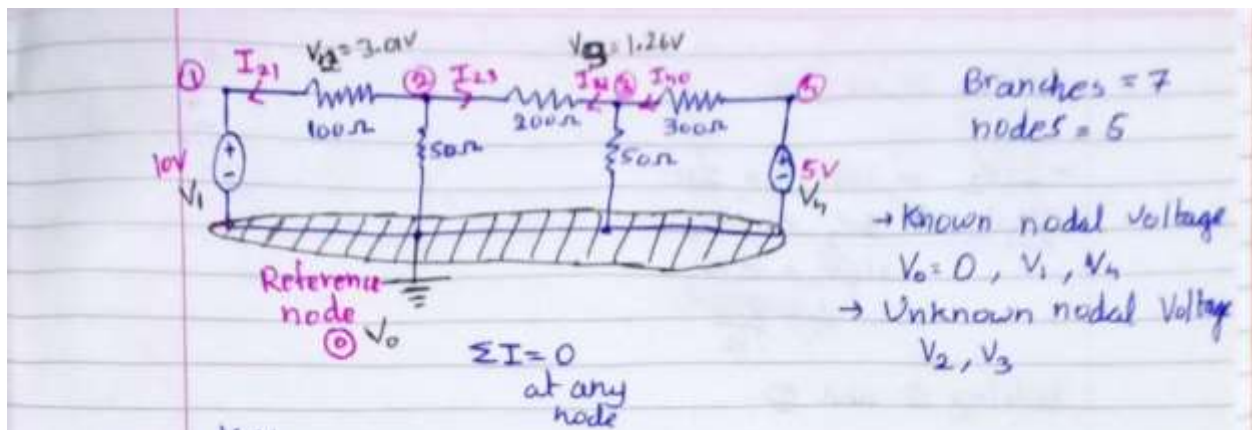 V2 = 3.01V
V3 = 1.26V
① I21 ② I23 ③
100Ω 200Ω 300Ω
50Ω 50Ω
10V 5V
V1 V4
Reference
node
⓪ V0
ΣI = 0
at any
node
Branches = 7
nodes = 5
→ Known nodal voltage
V0 = 0 , V1 , V4
→ Unknown nodal Voltage
V2 , V3